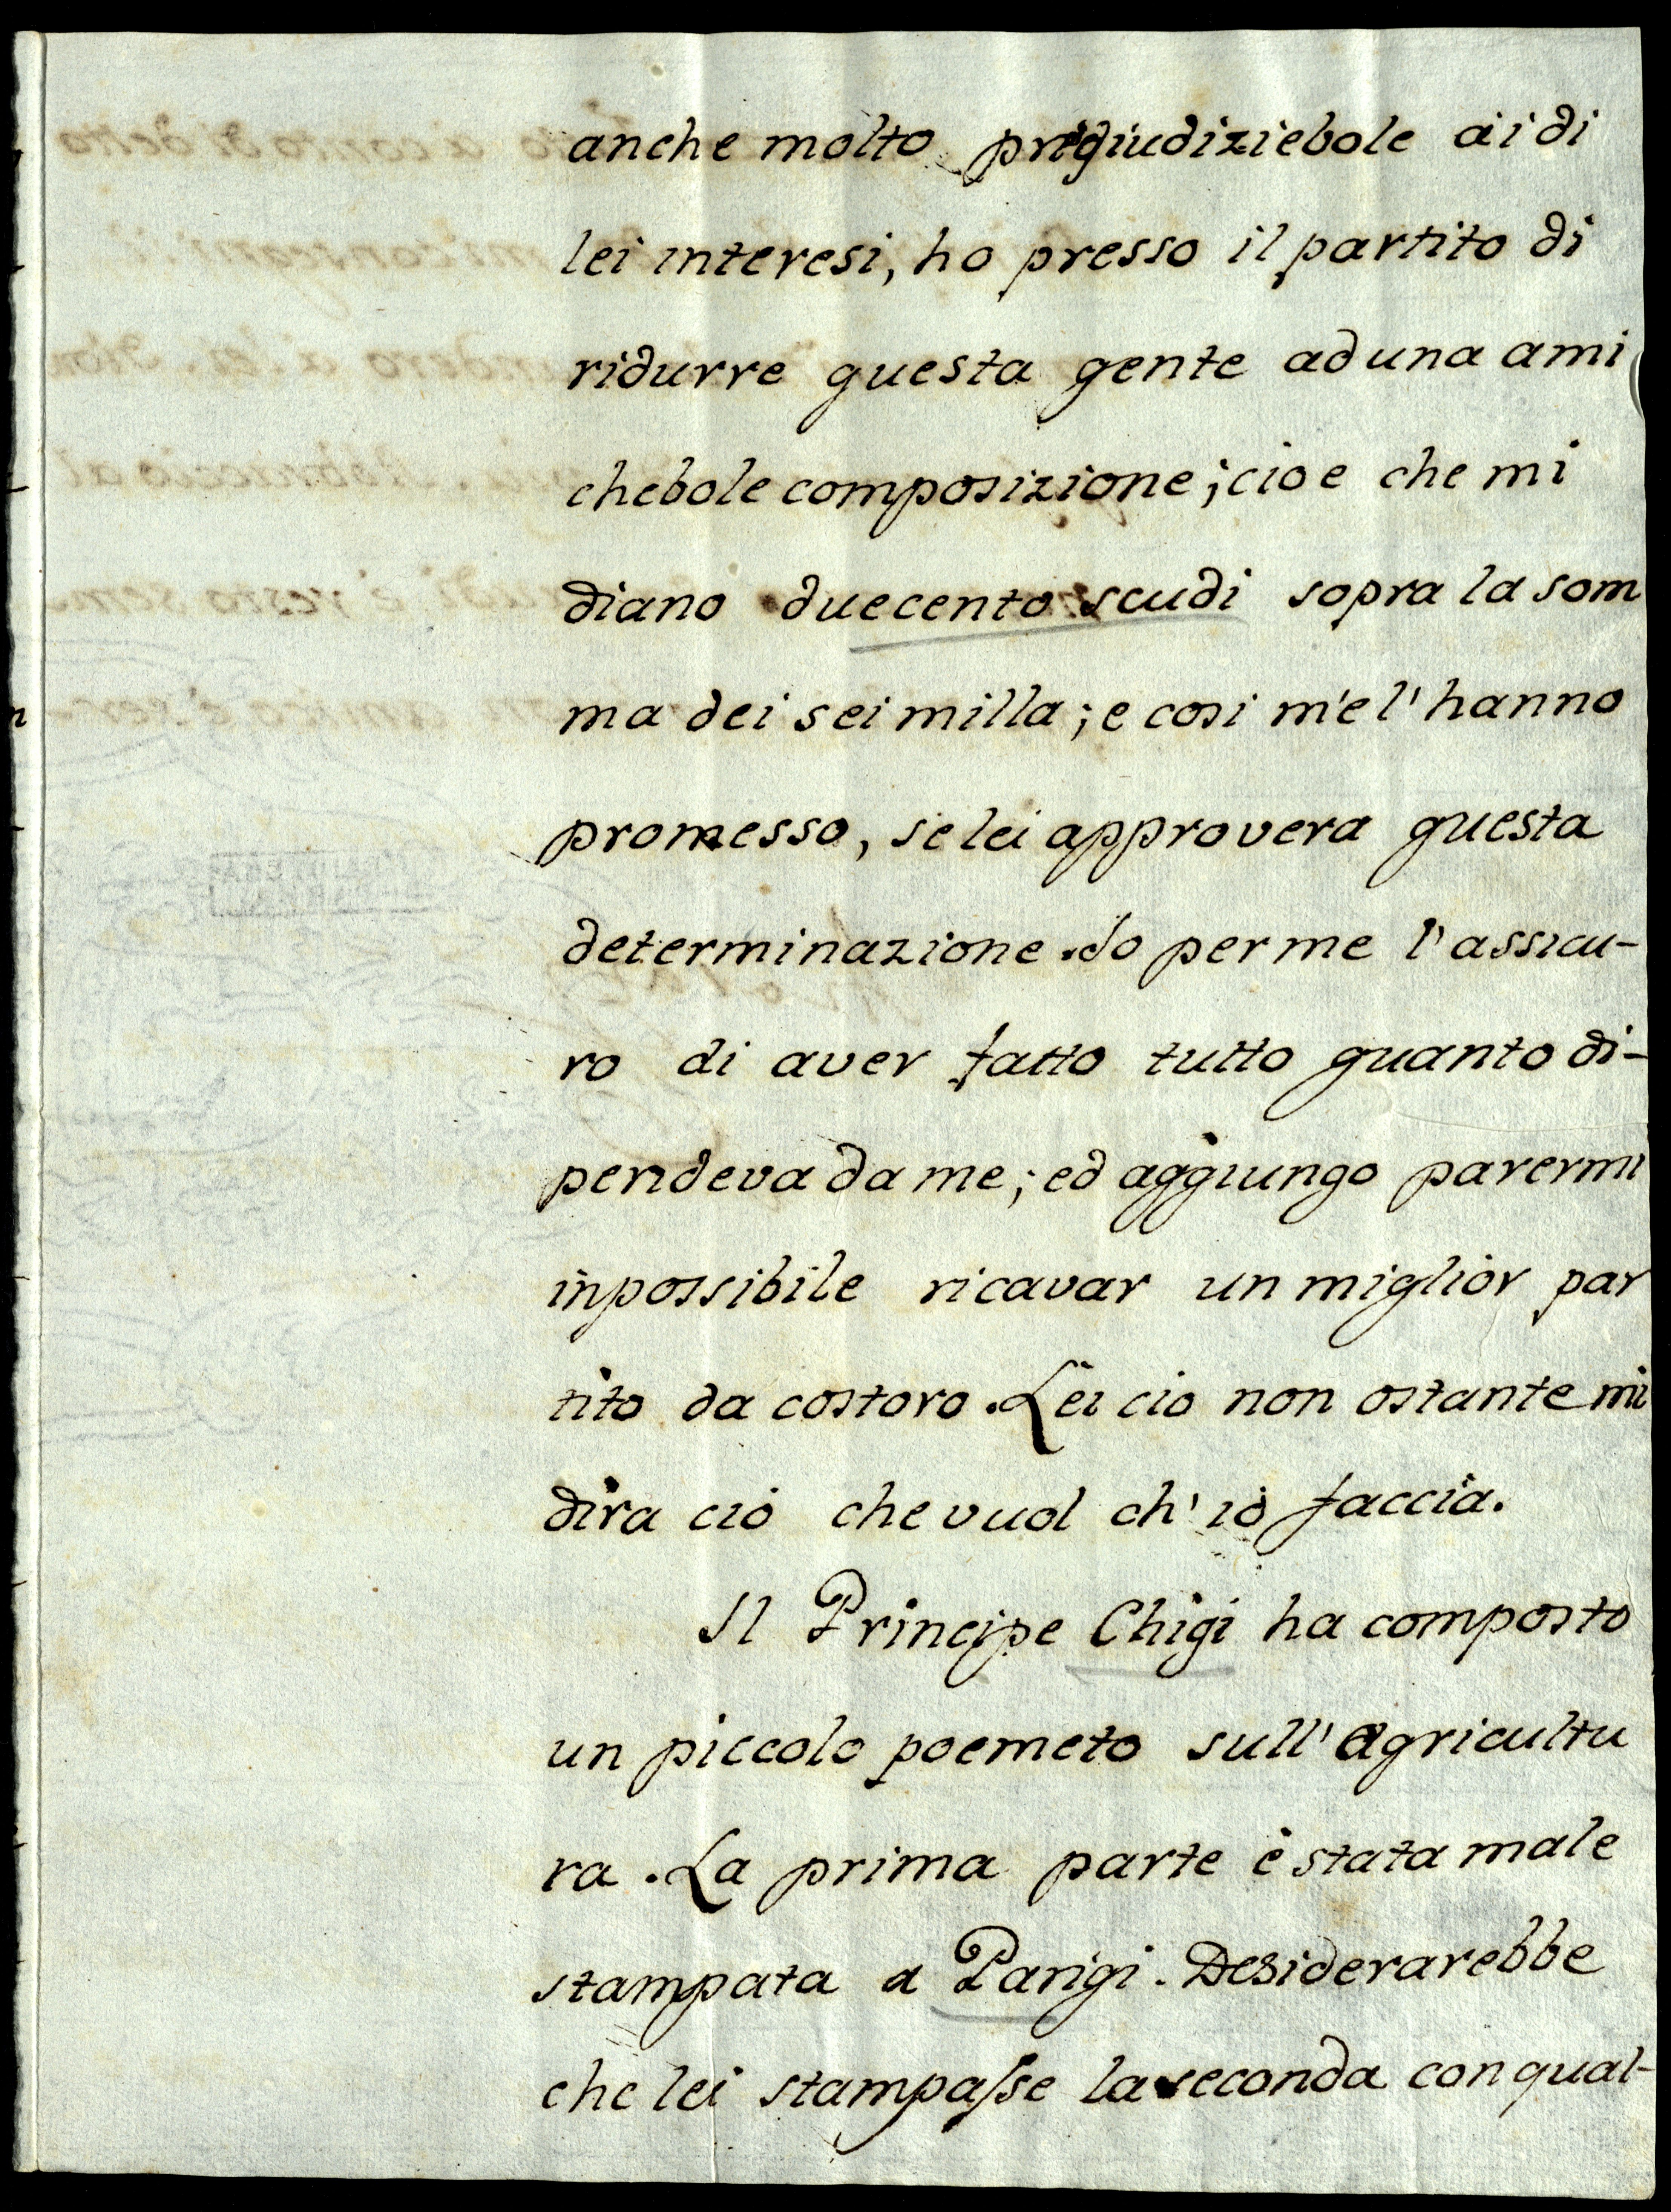 anche molto pregiudiziebole ai di
lei interesi, ho presso il partito di
ridurre questa gente ad una ami
chebole composizione; cioe che mi
diano duecento scudi sopra la som
ma dei sei milla; e cosi m'e l'hanno
promesso, se lei approvera questa
determinazione. Io per me l'assicu-
ro di aver fatto tutto quanto di-
pendeva da me; ed aggiungo parermi
inpossibile ricavar un miglior par
tito da costoro. Lei cio non ostante mi
dira ciò che vuol ch'io faccia.
Il Principe Chigi ha composto
un piccolo poemeto sull'agricultu
ra. La prima parte è stata male
stampata a Parigi. Desiderarebbe
che lei stampasse la seconda con qual-